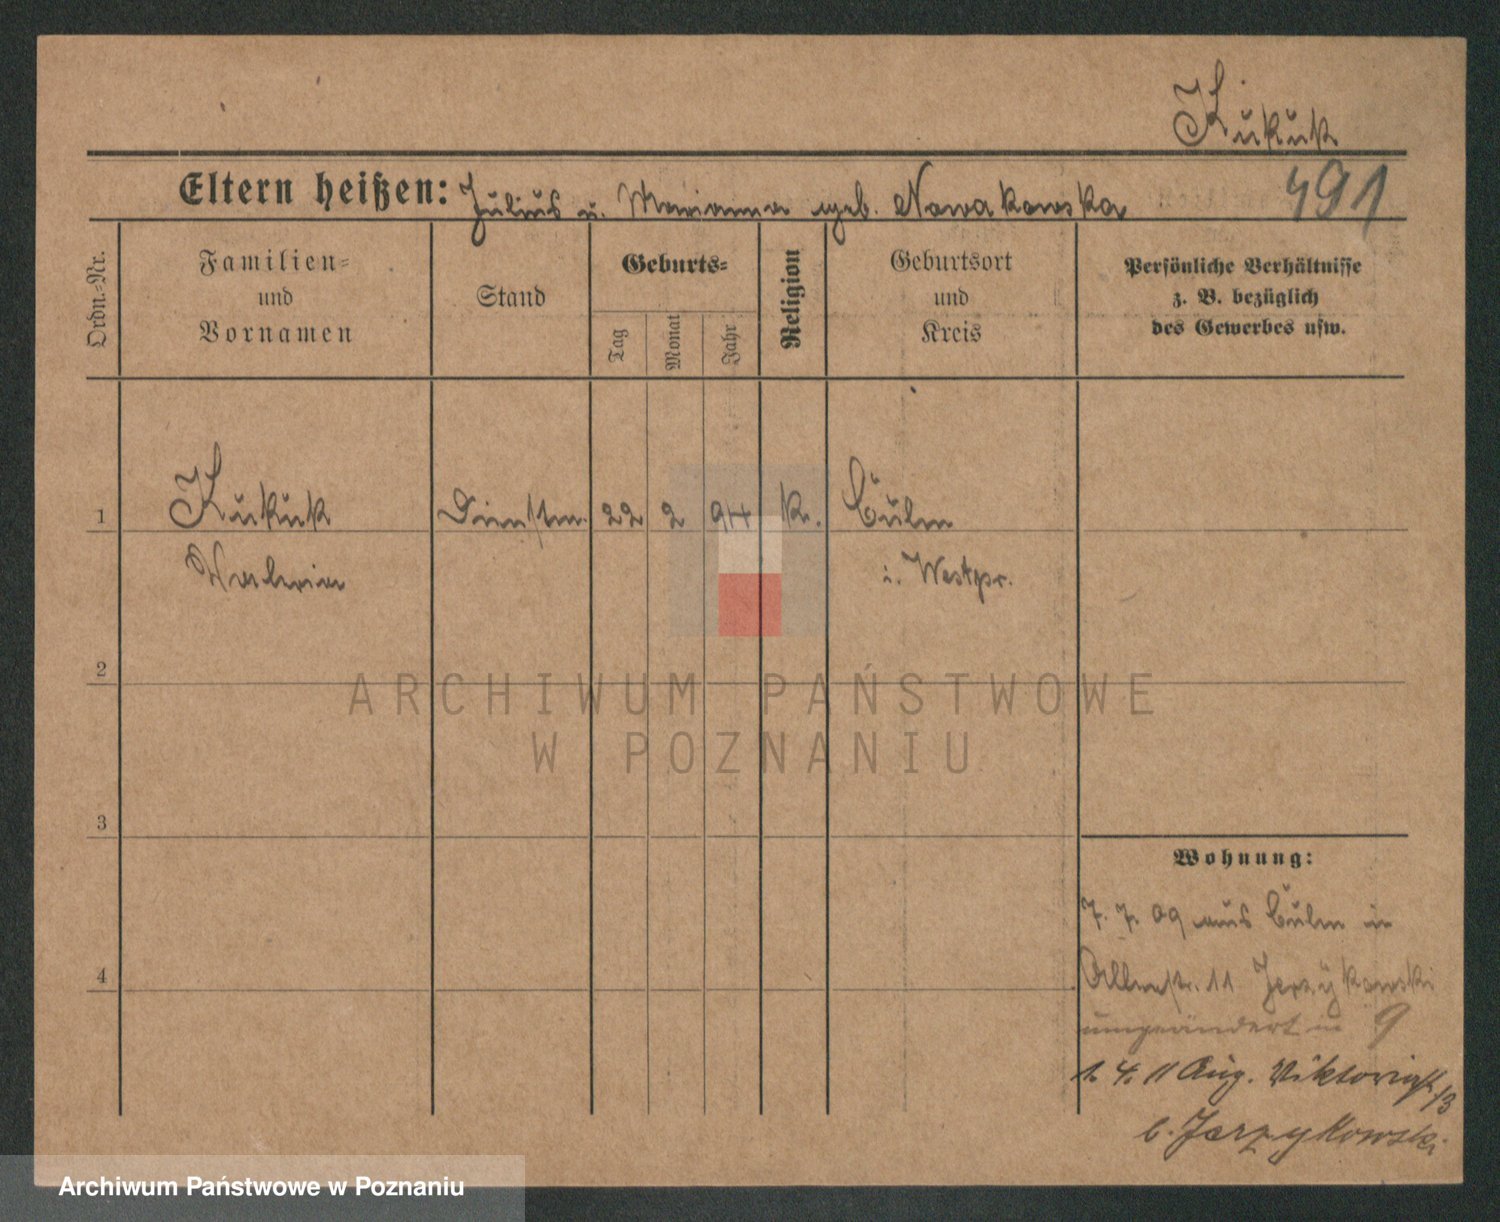 Kukuk
Eltern heißen: Julius u. Marianna geb. Nowakowska
491
Ordn.-Nr.
Familien-
und
Vornamen
Stand
Geburts-
Tag
Monat
Jahr
Religion
Geburtsort
und
Kreis
Persönliche Verhältnisse
z. B. bezüglich
des Gewerbes usw.
1 Kukuk Dienstm. 22 2 94 k. Culm
Waleria i. Westpr.
2
ARCHIWUM PAŃSTWOWE
W POZNANIU
3
Wohnung:
7. 7. 09 aus Culm in
4
11 Jerzykowski
umgeändert in 9
1. 4. 11 Aug. Viktoriastr. 13
b. Jerzykowski
Archiwum Państwowe w Poznaniu